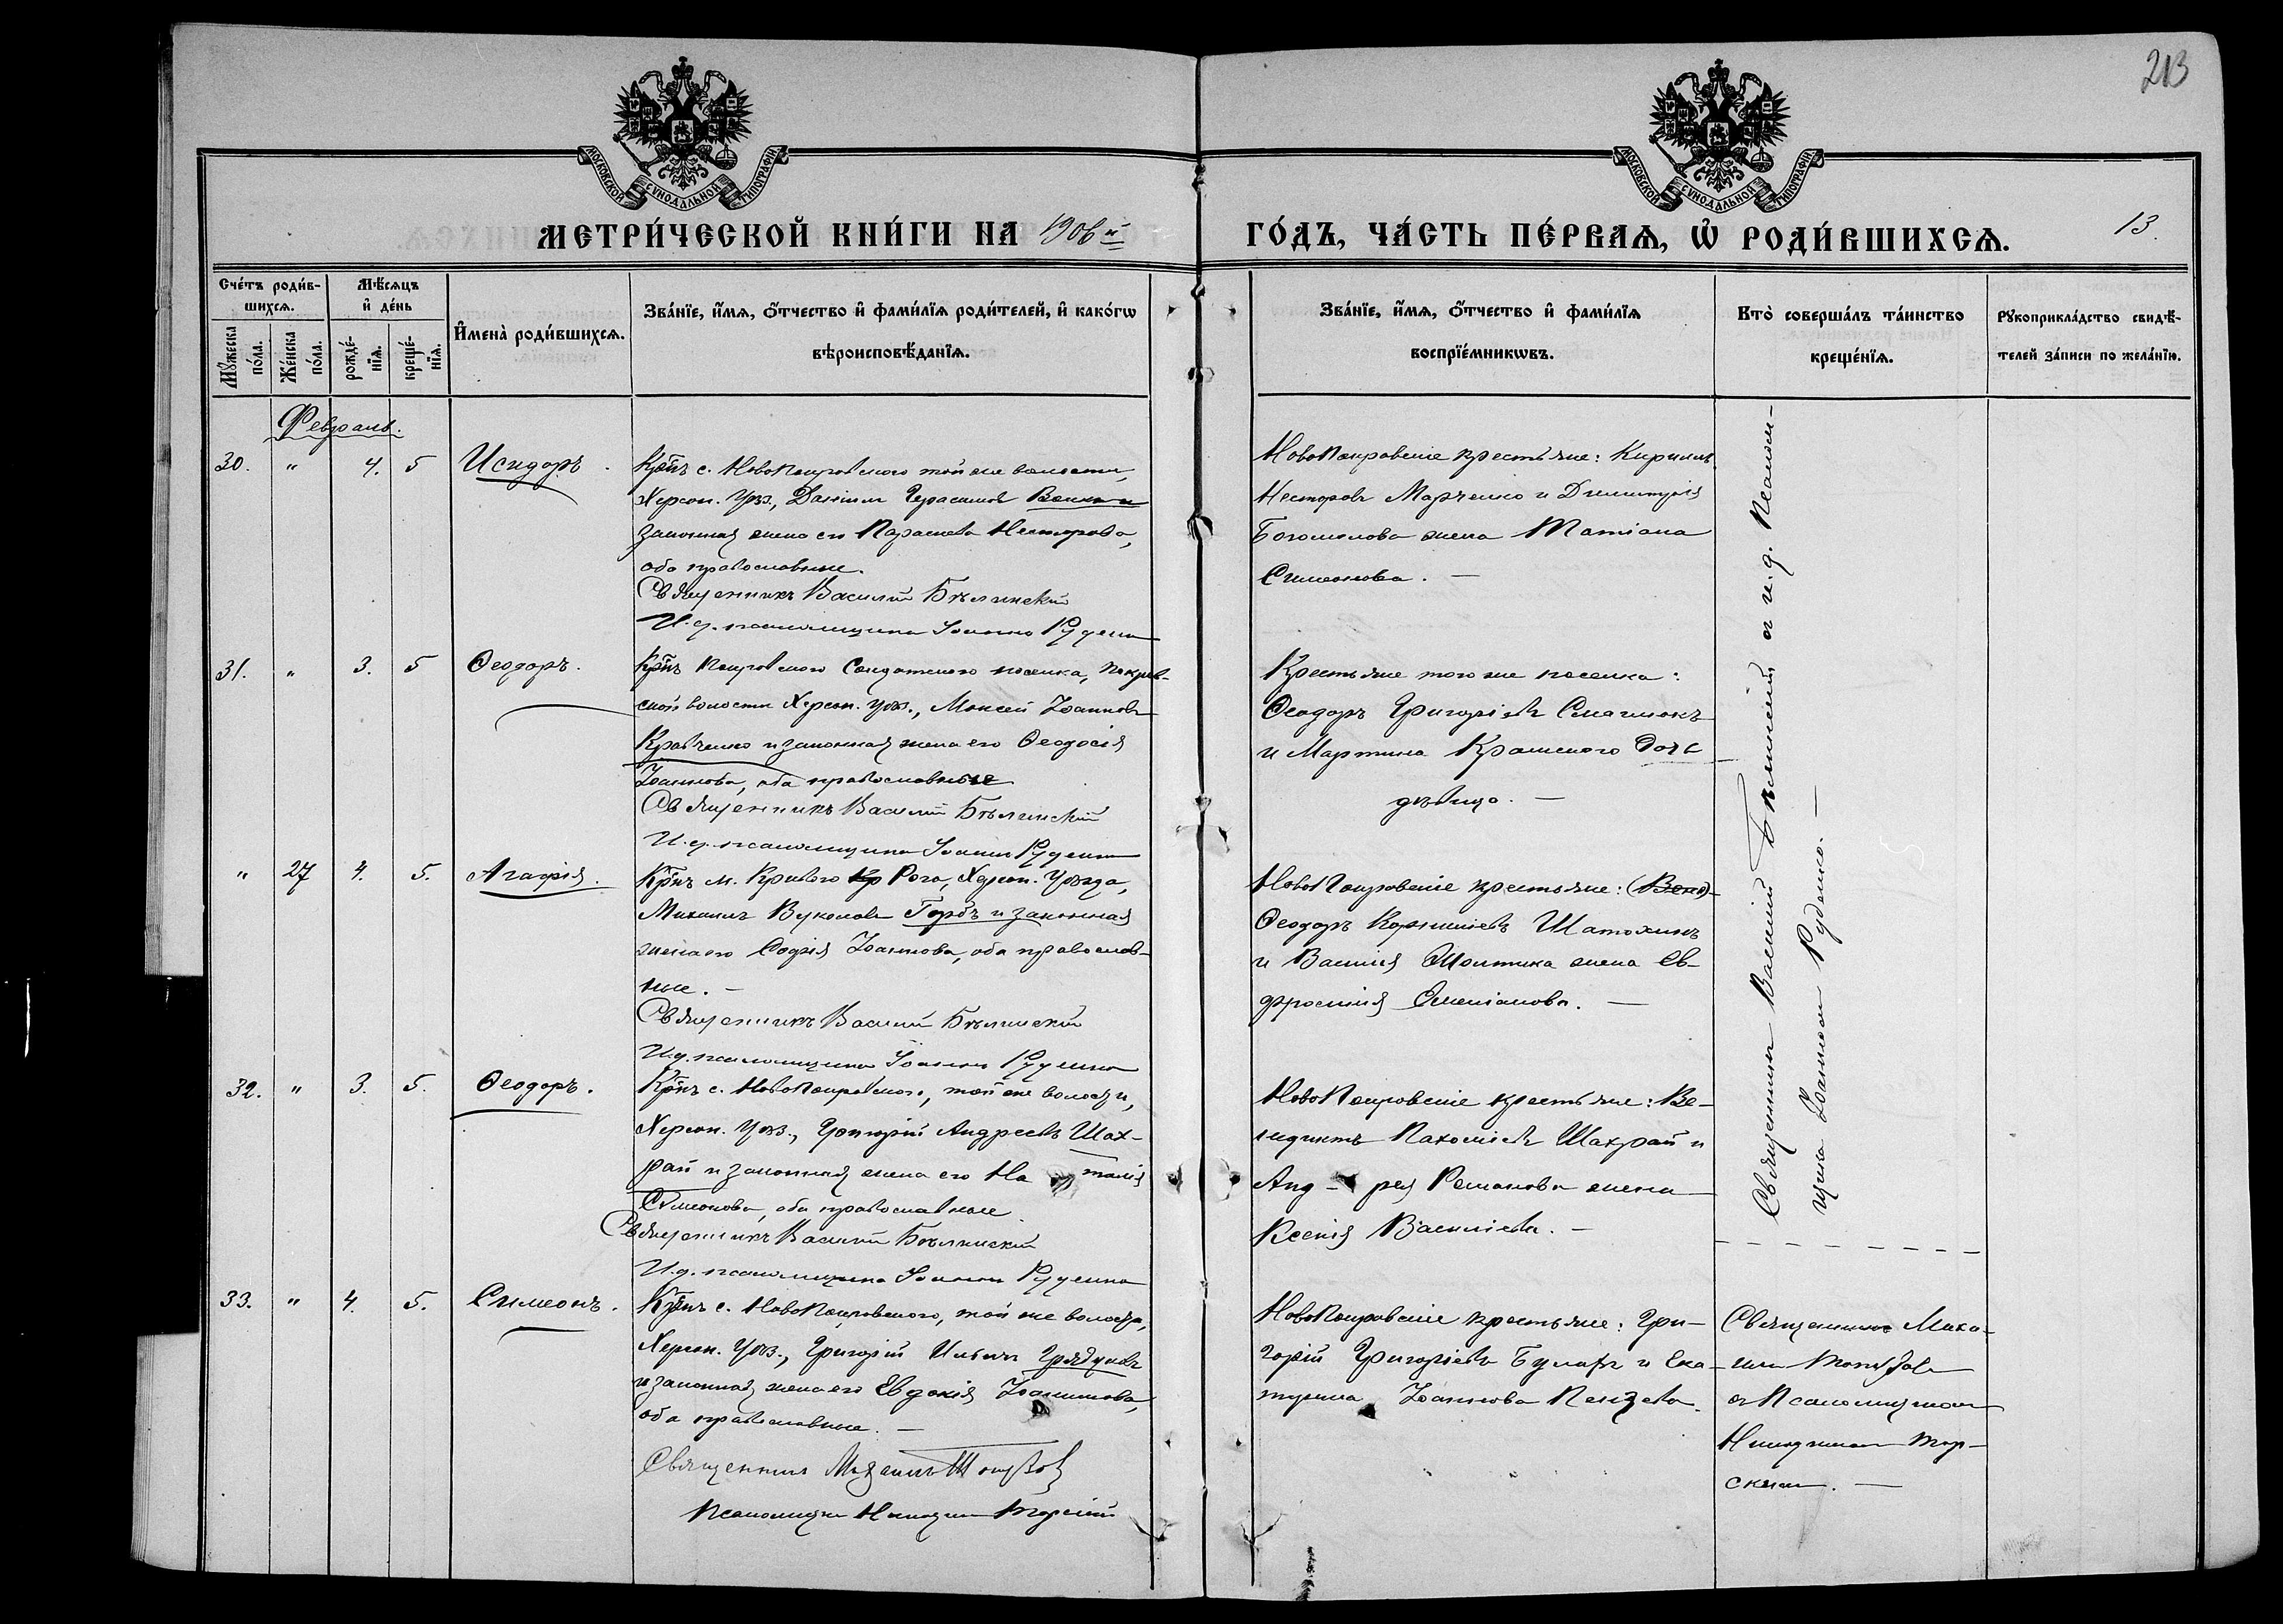 213
МОСКОВСКОЙ СѴНОДАЛЬНОЙ ТИПОГРАФІИ.
МОСКОВСКОЙ СѴНОДАЛЬНОЙ ТИПОГРАФІИ.
МЕТРИ́ЧЕСКОЙ КНИ́ГИ НА 1906й
ГО́ДЪ, ЧА́СТЬ ПЕ́РВАѦ, Ѡ҆ РОДИ́ВШИХСѦ.
13.
Сче́тъ роди́в-
шихсѧ.
Мꙋ́жеска по́ла.
Же́нска по́ла.
Мѣ́сѧцъ
и҆ де́нь
рожде́-
нїѧ.
креще́-
нїѧ.
И҆мена̀ роди́вшихсѧ.
Зва́нїе, и҆́мѧ, ѻ҆́тчество и҆ фами́лїѧ роди́телей, и҆ како́гѡ
вѣроисповѣ́данїѧ.
Зва́нїе, и҆́мѧ, ѻ҆́тчество и҆ фами́лїѧ
воспрїе́мникѡвъ.
Кто̀ соверша́лъ та́инство
креще́нїѧ.
Рꙋкоприкла́дство свидѣ́-
телей за́писи по жела́нїю.
Февраль.
30. " 4. 5 Исидоръ.
Кр-нъ с. Новопокровскаго той же волости,
Херсон. уѣз., Даніилъ Герасимовъ
законная жена его Параскева Несторова,
оба православные.
Священникъ Василій Бѣлинскій
И.д. псаломщика Іоаннъ Руденко
Новопокровскіе крестьяне: Кириллъ
Несторовъ Марченко и Димитрія
Богомолова жена Татіана
Симеонова. —
31. " 3. 5 Ѳеодоръ.
Кр-нъ Покровскаго Солдатскаго поселка, Покров-
ской волости Херсон. уѣз., Моисей Іоанновъ
Кравченко и законная жена его Ѳеодосія
Іоаннова, оба православные
Священникъ Василій Бѣлинскій
И.д. псаломщика Іоаннъ Руденко
Крестьяне того же поселка:
Ѳеодоръ Григоріевъ
и Мартина дочь
дѣвица. —
" 27 4. 5. Агафія.
Кр-нъ м. Кривого Рога, Херсон. уѣзда,
Михаилъ Вуколовъ Горбъ и законная
жена его Софія Іоаннова, оба православ-
ные. —
Священникъ Василій Бѣлинскій
И.д. псаломщика Іоаннъ Руденко
Новопокровскіе крестьяне:
Ѳеодоръ Корниліевъ Шатохинъ
и Василія жена Ев-
фросинія —
32. " 3. 5. Ѳеодоръ.
Кр-нъ с. Новопокровскаго, той же волости,
Херсон. уѣз., Григорій Андреевъ Шах-
рай и законная жена его На талія
Симеонова, оба православные
Священникъ Василій Бѣлинскій
И.д. псаломщика Іоаннъ Руденко
Новопокровскіе крестьяне: Ве-
недиктъ Пахоміевъ Шахрай и
Анд - рея Романова жена
Ксенія Васильева. —
Священникъ Василій Бѣлинскій съ и.д. псалом-
щика Іоанномъ Руденко. —
33. " 4. 5. Симеонъ.
Кр-нъ с. Новопокровскаго, той же волости,
Херсон. уѣз., Григорій Ильинъ
и законная жена его Евдокія Іоаннова,
оба православные. —
Священникъ Михаилъ
Псаломщикъ Торскій
Новопокровскіе крестьяне: Гри-
горій Григорьевъ и Ека-
терина Іоаннова
Священникъ Миха-
илъ
съ Псаломщикомъ
Тор-
скимъ. —